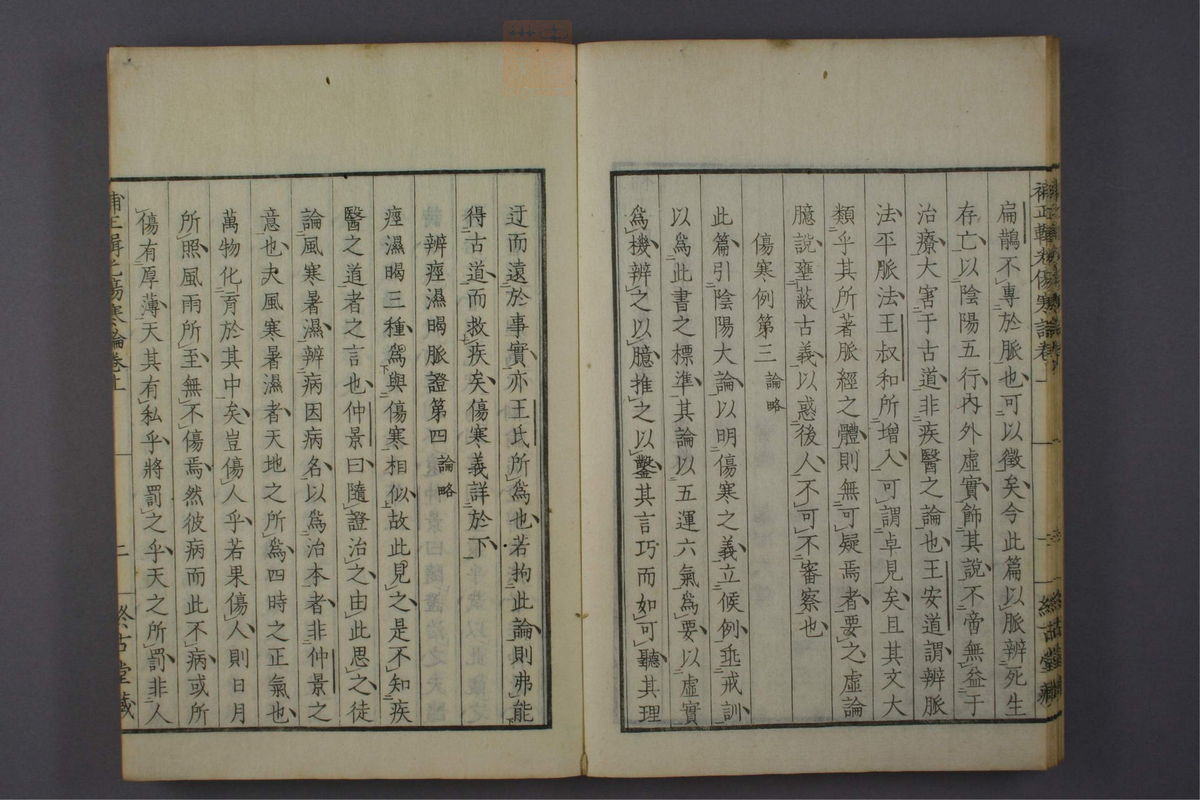 扁鵲不專於脈也可以徵矣今此篇以脈辨死生
存亡以陰陽五行內外虛實飾其說不啻無益于
治療大害于古道非疾醫之論也王安道謂辨脈
法平脈法王叔和所增入可謂卓見矣且其文大
類乎其所著脈經之體則無可疑焉者要之虛論
臆說壅蔽古義以惑後人不可不審察也
傷寒例第三 論略
此篇引陰陽大論以明傷寒之義立候例垂戒訓
以爲此書之標準其論以五運六氣爲要以虛實
爲機辨之以臆推之以鑿其言巧而如可聽其理
迂而遠於事實亦王氏所爲也若拘此論則弗能
得古道而救疾矣傷寒義詳於下
辨痙濕暍脈證第四 論略
痙濕暍三種爲與傷寒相似故此見之是不知疾
醫之道者之言也仲景曰隨證治之由此思之徒
論風寒暑濕辨病因病名以爲治本者非仲景之
意也夫風寒暑濕者天地之所爲四時之正氣也
萬物化育於其中矣豈傷人乎若果傷人則日月
所照風雨所至無不傷焉然彼病而此不病或所
傷有厚薄天其有私乎將罰之乎天之所罰非人
傷寒論卷上
二
終古堂藏